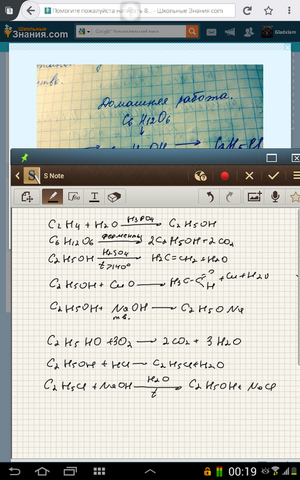 Помогите пожалуйста написать 8... - Школьные Знания.com
Школьные
Знания.com
Gladxlam
Домашняя работа.
C6 H12O6
S Note
C2H4 + H2O H3PO4→ C2H5OH
C6H12O6 ферменты→ 2C2H5OH+2CO2
C2H5OH H2SO4→ H2C=CH2+H2O
t>140°
C2H5OH + CuO → H3C-C O H + Cu+H2O
C2H5OH+ NaOH → C2H5O Na
тв.
C2H5HO+3O2 → 2CO2+ 3H2O
C2H5OH + HCl → C2H5Cl+H2O
C2H5Cl + NaOH H2O→ C2H5OH+ NaCl
t
00:19